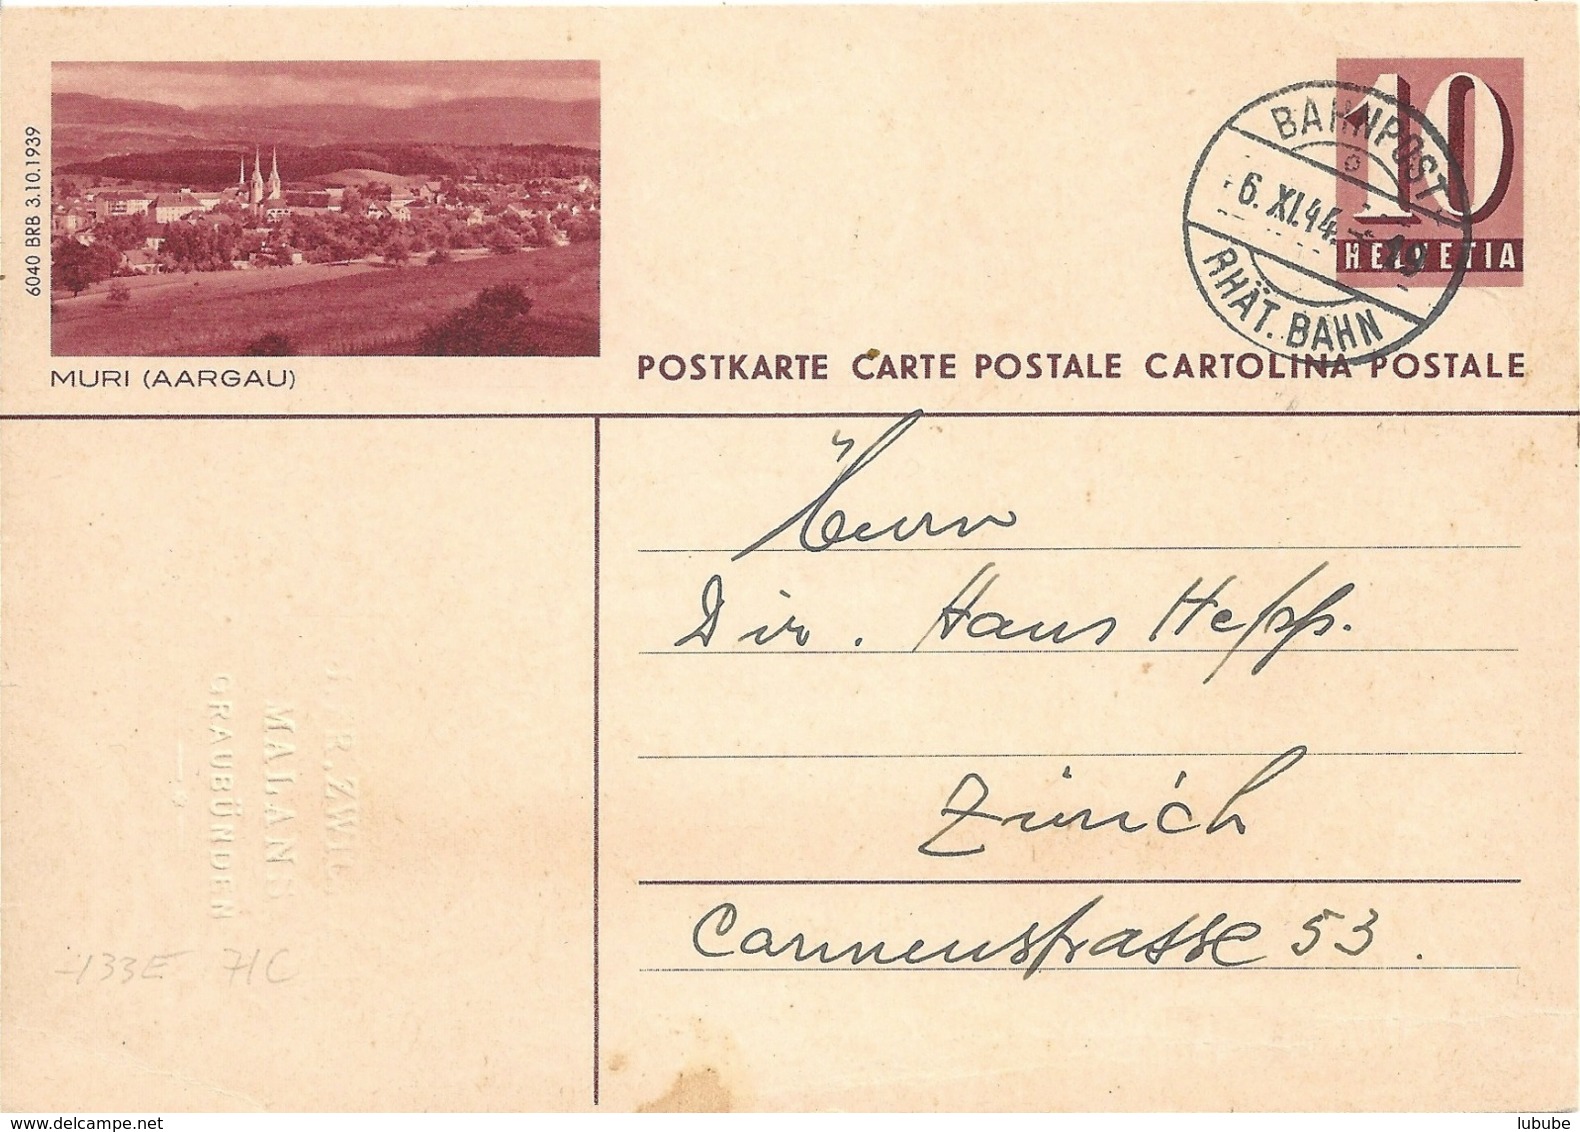 6040 BRB 3.10.1939
MURI (AARGAU)
10
HELVETIA
BAHNPOST
6. XI. 44. - 19
RHÄT. BAHN
POSTKARTE CARTE POSTALE CARTOLINA POSTALE
Herrn
Dir. Hans Hepp.
Zürich
Carmenstrasse 53.
R. ZWICKY
MALANS
GRAUBÜNDEN
-133E 71C
www.delcampe.net
lubube